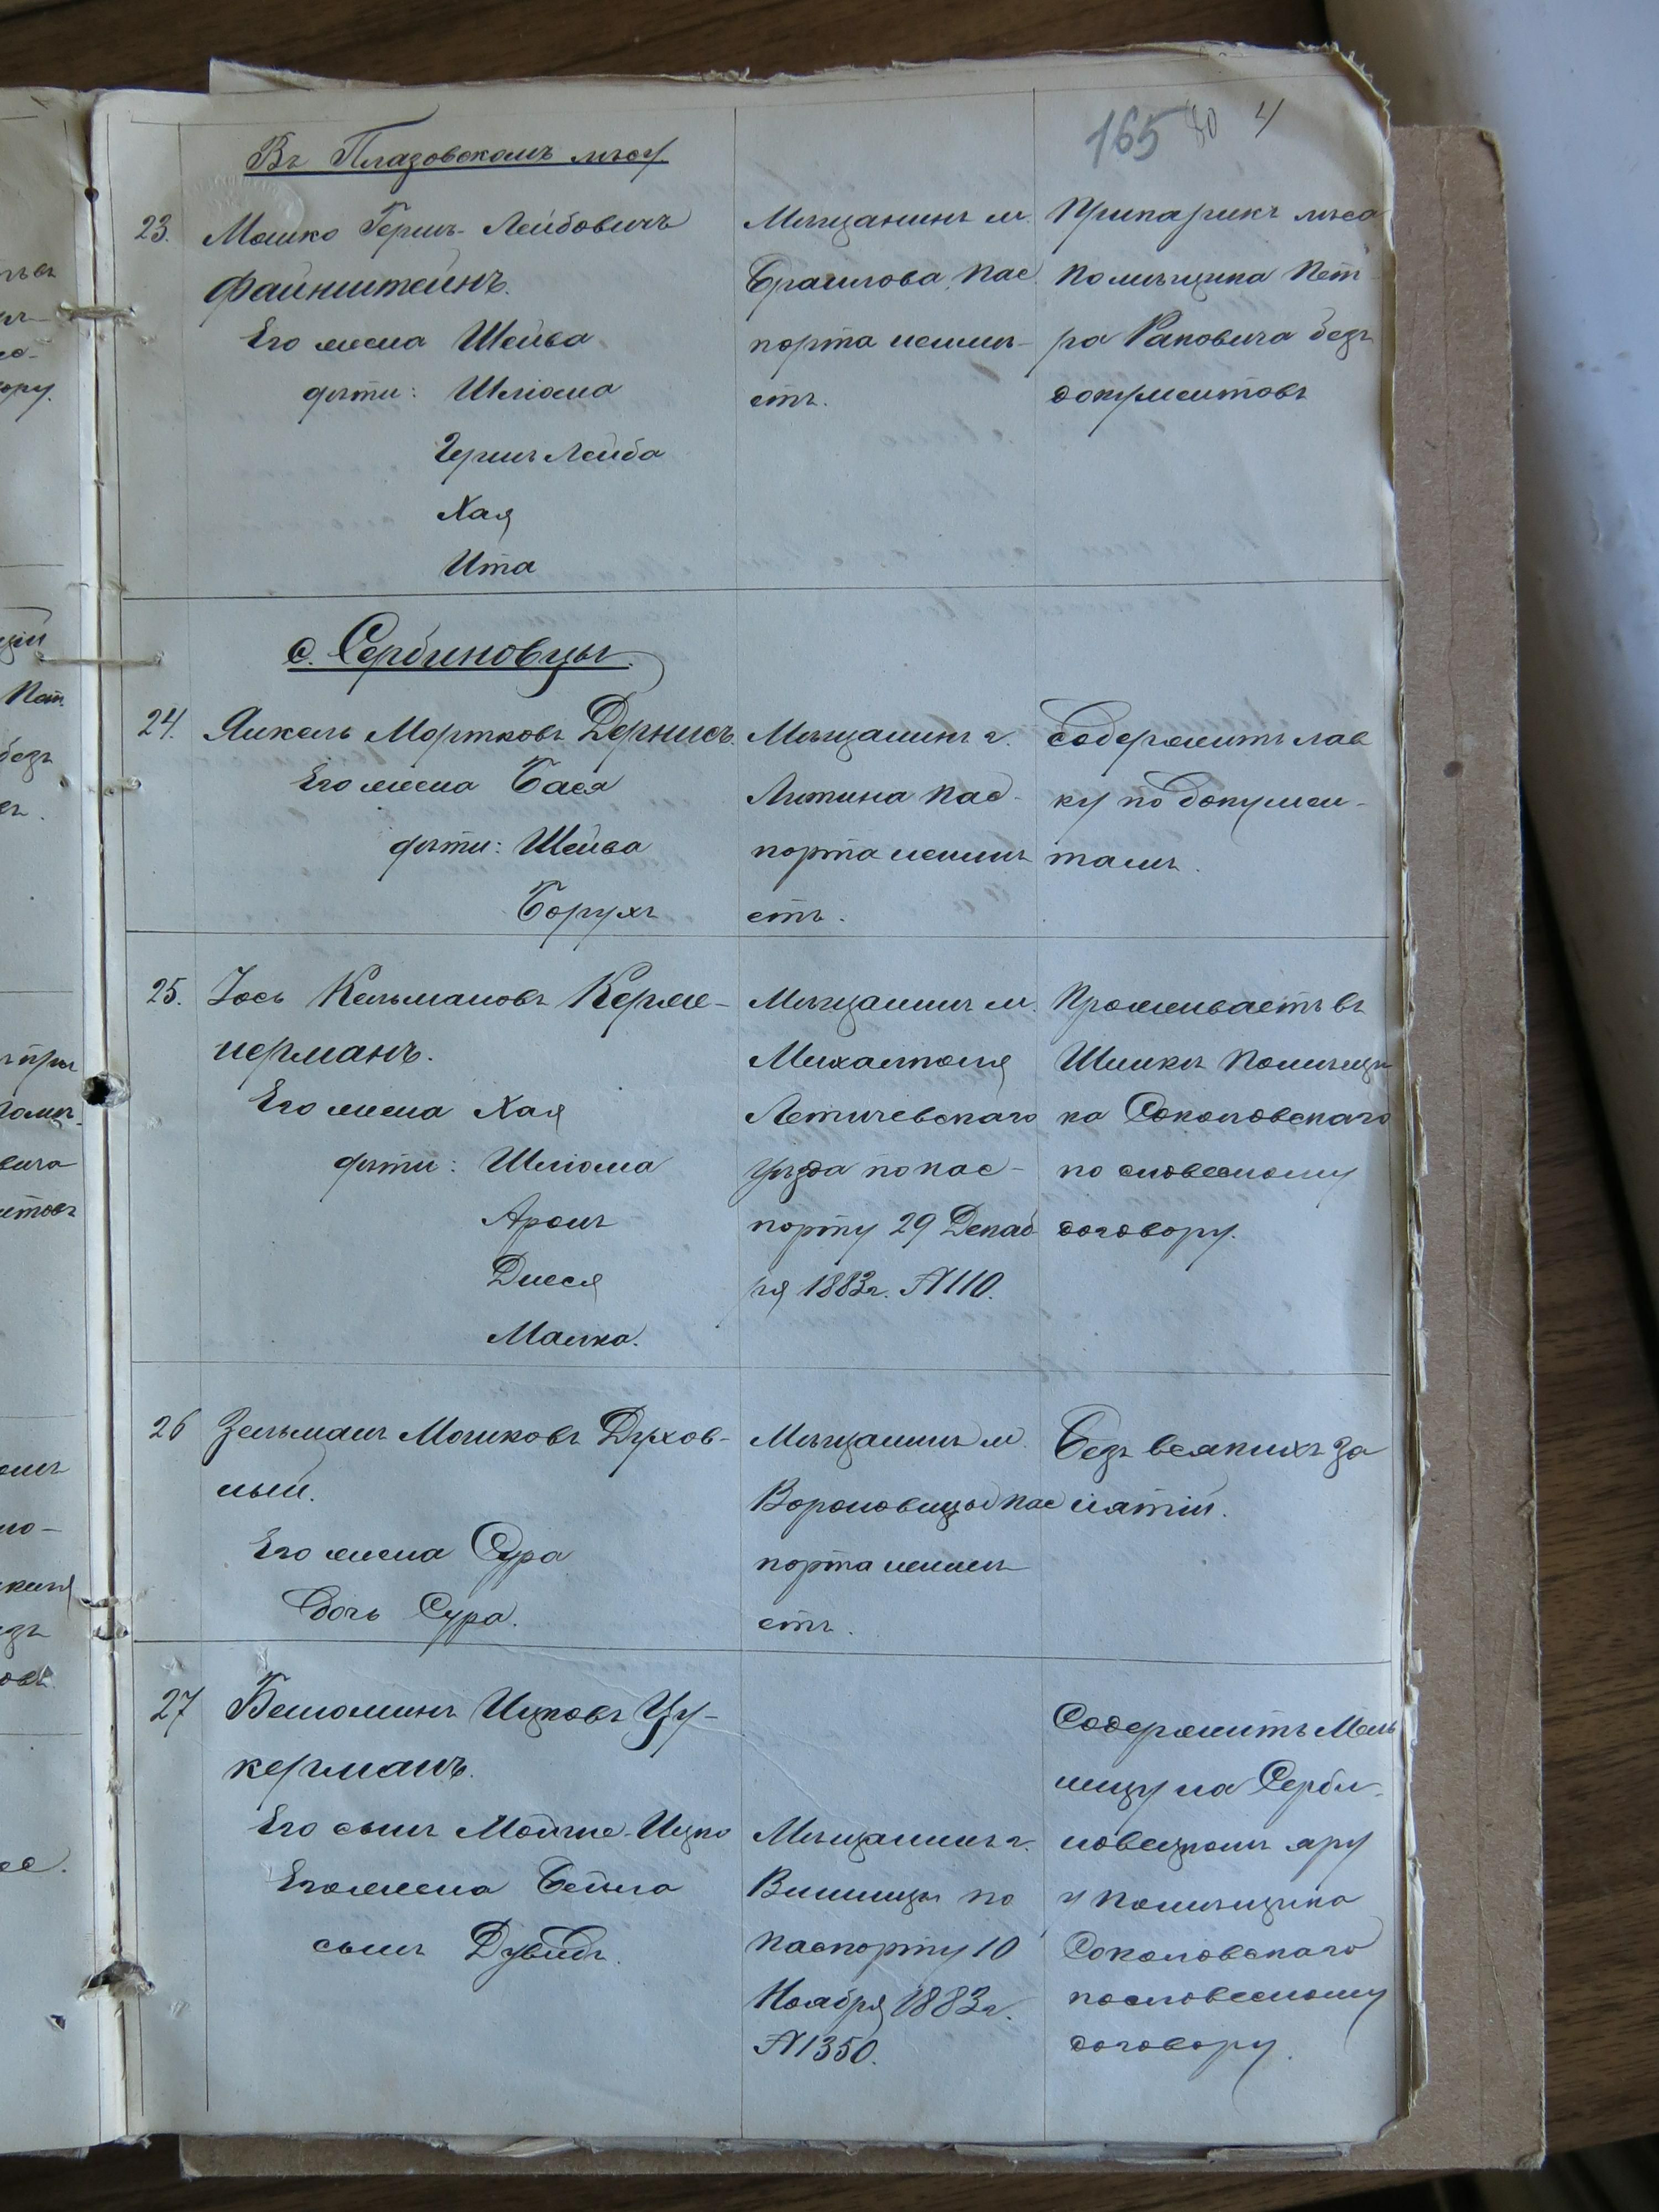 165 40 4
Въ Плазовскомъ лѣсу
23. Мошко Гершъ-Лейбовичъ
Файнштейнъ.
Его жена Шейва
дѣти: Шліома
Гершъ Лейба
Хая
Ита
Мѣщанинъ м.
Браилова, пас
порта неимѣ-
етъ.
При паркѣ лѣса
помѣщика Пет
ра Раковича безъ
документовъ
с. Сербиновцы.
24. Янкель Мортковъ Дернисъ.
Его жена Бася
дѣти: Шейва
Борухъ
Мѣщанинъ г.
Литина пас-
порта неимѣ
етъ.
Содержитъ лав
ку по докумен-
тамъ.
25. Іось Кельмановъ Керже-
нерманъ.
Его жена Хая
дѣти: Шліома
Аронъ
Двося
Малка.
Мѣщанинъ м.
Михалполя
Летичевскаго
уѣзда по пас-
порту 29 Декаб
ря 1883г. №110.
Проживаетъ въ
Шинкѣ помѣщи
ка Соколовскаго
по словесному
договору.
26 Зельманъ Мошковъ Духов-
ный.
Его жена Сура
Дочь Сура.
Мѣщанинъ м.
Вороновицы пас
порта неимѣ
етъ.
Безъ всякихъ за
нятій.
27 Беніоминъ Ицковъ Цу-
керманъ.
Его сынъ Мойше-Ицко
Его жена Бейла
сынъ Дувидъ.
Мѣщанинъ г.
Винницы по
паспорту 10
Ноября 1883г.
№1350.
Содержитъ Мель
ницу на Серби-
новецкомъ яру
у помѣщика
Соколовскаго
пословесному
договору.